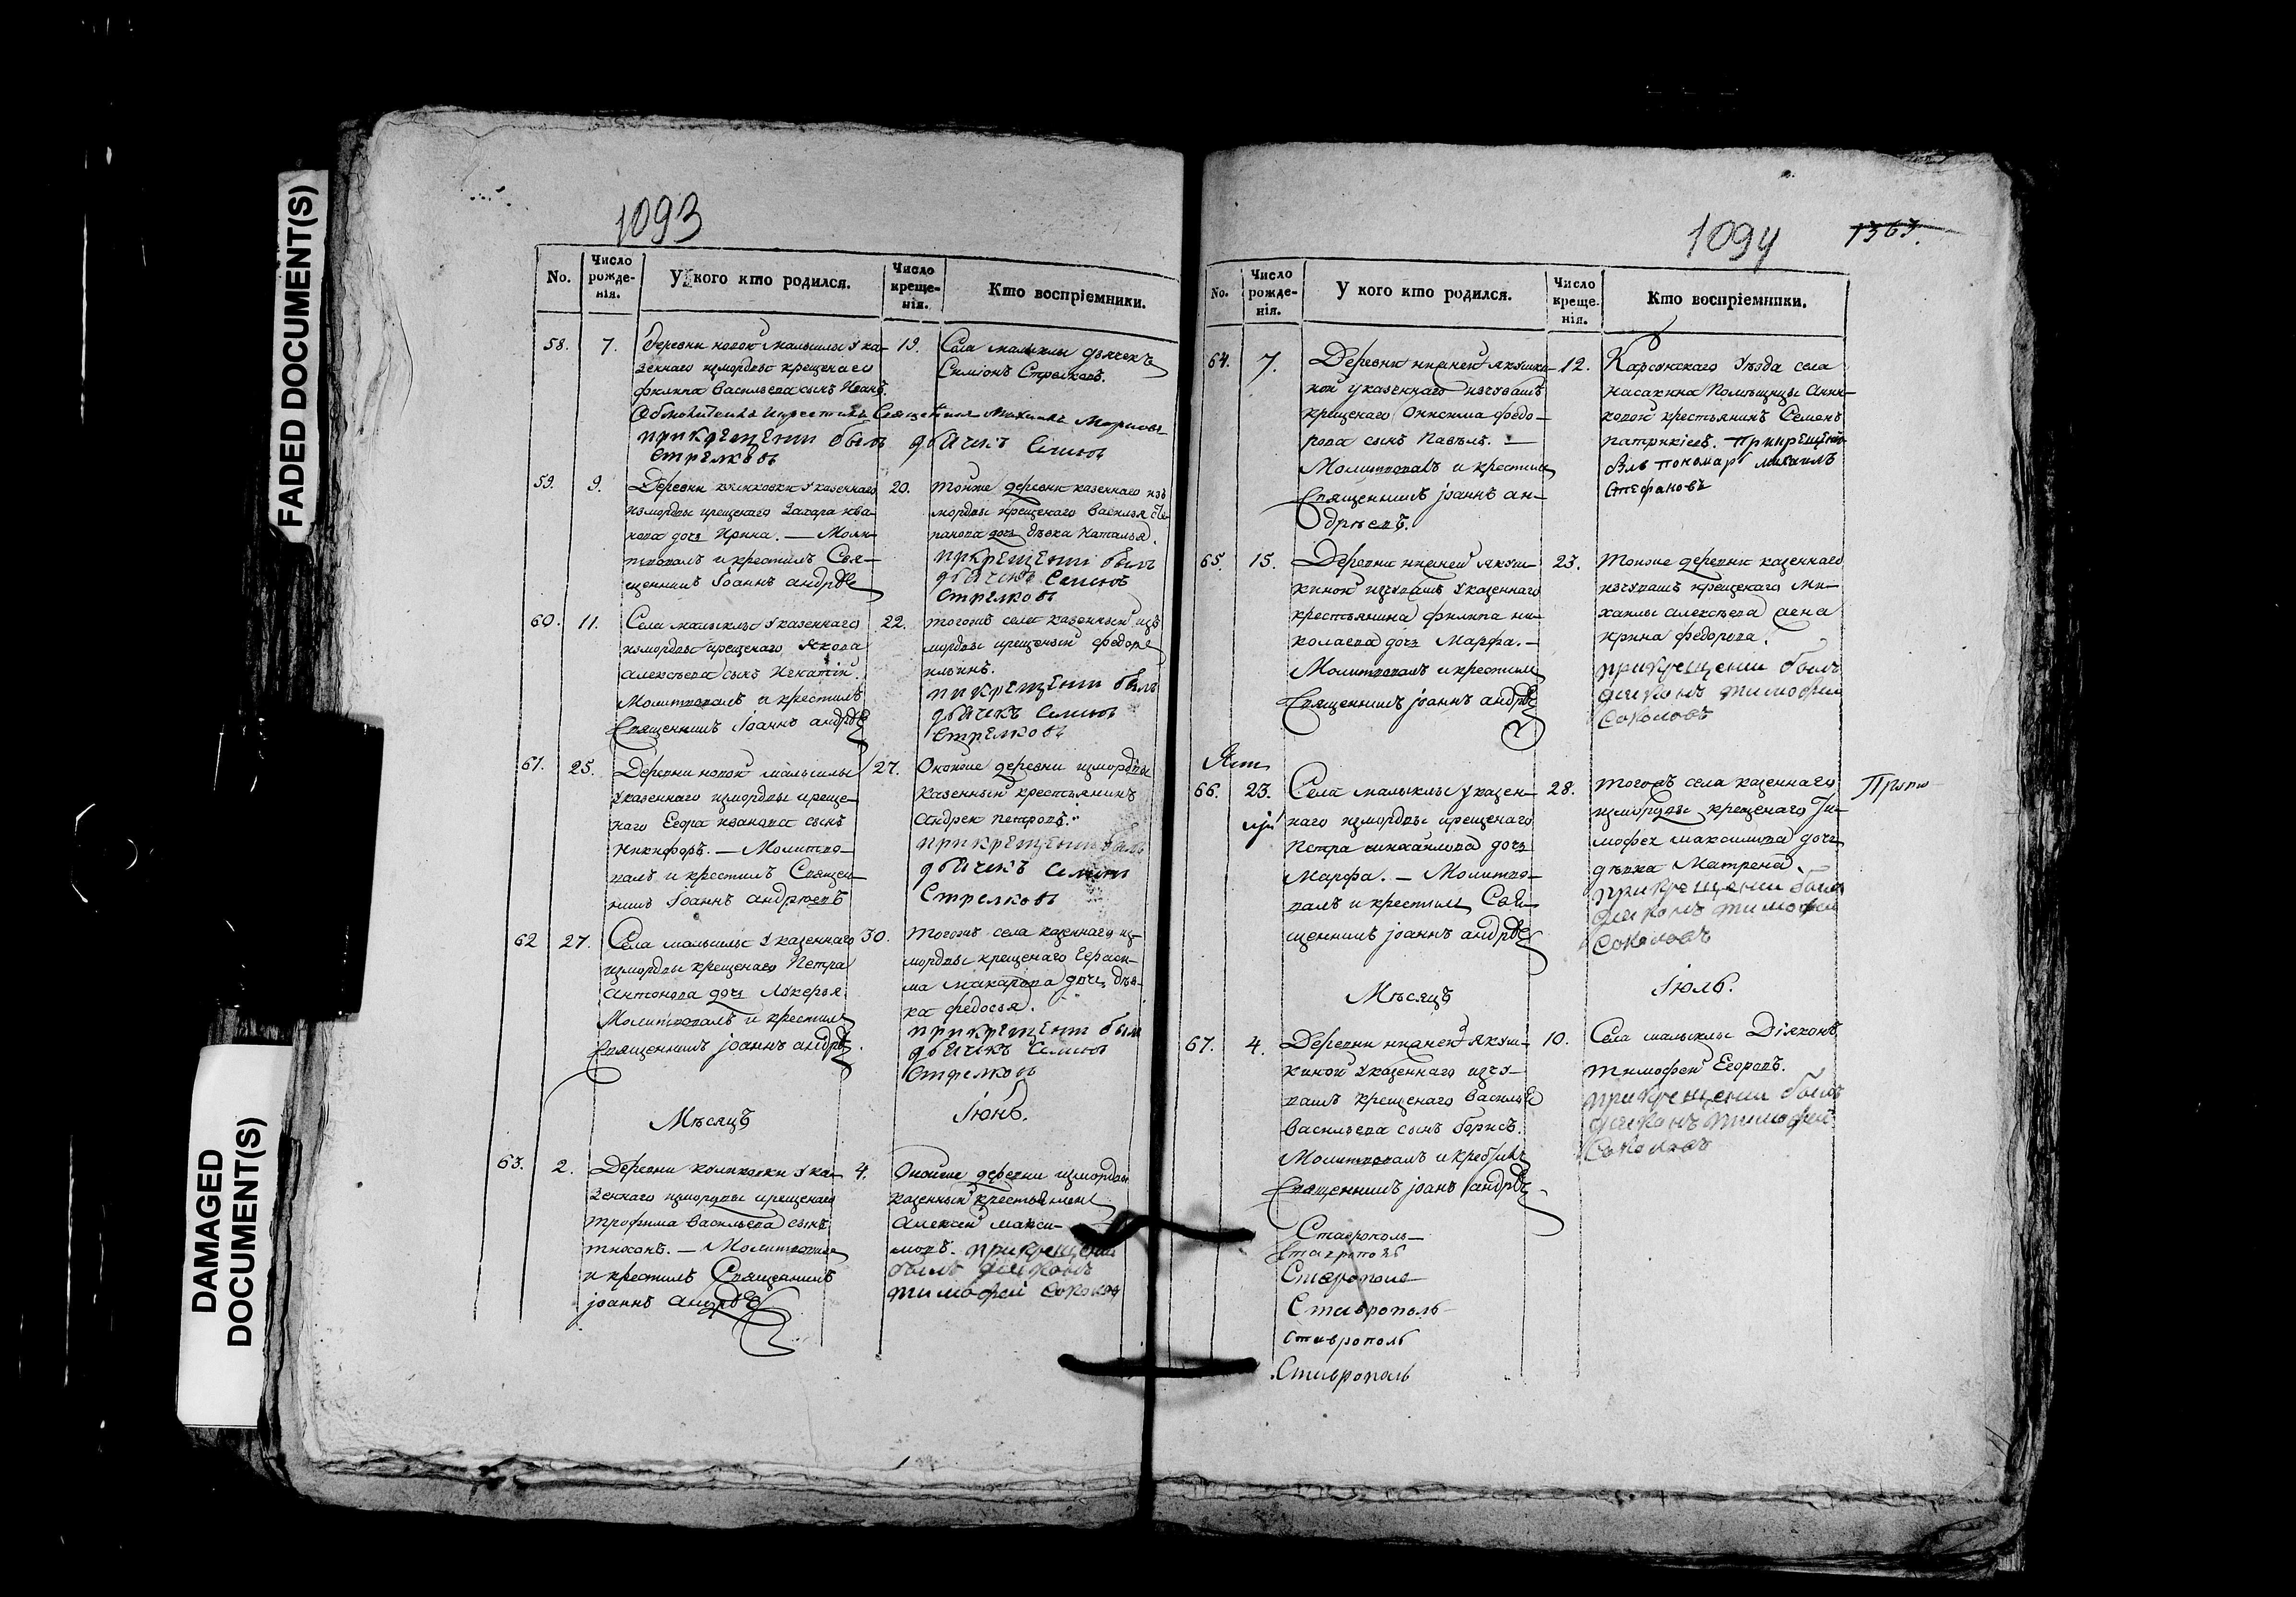 FADED DOCUMENT(S)
DAMAGED
DOCUMENT(S)
1093
No.
Число рожде-нія.
У кого кто родился.
Число креще-нія.
Кто воспріемники.
58. 7.
деревни новой малыклы у ка-
зеннаго измордвы крещенаго
филипа Васильева сынъ Иванъ.
19.
Села малыклы дьячекъ
Симіонъ Стрелковъ.
прикрещении былъ дьячикъ Семион
Стрелковъ
59. 9.
Деревни у казеннаго
измордвы крещенаго Захара ива-
нова дочь Ирина. — Моли-
твовалъ и крестилъ Свя-
щенникъ Іоаннъ андрѣе
20.
тойже деревни казеннаго изъ
мордвы крещенаго Василья Сте-
панова дочь дѣвка Наталья.
прикрещении былъ
дьячикъ Семион
Стрелковъ
60. 11.
Села малыклы у казеннаго
измордвы крещенаго Якова
алексѣева сынъ Игнатій.
Молитвовалъ и крестилъ
Священникъ Іоаннъ андрѣе
22.
тогожъ села казенный изъ
мордвы крещеный федоръ
ильинъ.
прикрещении былъ
дьячикъ Семион
Стрелковъ
61. 25.
Деревни новой малыклы
у казеннаго измордвы креще-
наго Егора иванова сынъ
Никифоръ. — Молитво-
валъ и крестилъ Священ-
никъ Іоаннъ андрѣевъ
27.
Оной же деревни измордвы
казенный крестьянинъ
андрей петровъ.
прикрещении былъ
дьячикъ Семион
Стрелковъ
62 27.
Села малыклы у казеннаго
измордвы крещенаго Петра
антонова дочь Лукерья
Молитвовалъ и крестилъ
Священникъ іоаннъ андрѣе
30.
тогожъ села казеннаго из-
мордвы крещенаго Гераси-
ма макарова дочь дѣв-
ка федосья.
прикрещении былъ
дьячикъ Семион
Стрелковъ
Мѣсяцъ Іюнь.
63. 2.
Деревни у ка-
зеннаго измордвы крещенаго
трофима васильева сынъ
тихонъ. — Молитвовалъ
и крестилъ Священникъ
іоаннъ андрѣе
4.
Оной же деревни измордвы
казенный крестьянинъ
алексей макси-
мовъ. прикрещении
былъ дияконъ
тимофей Соколов
1094
1363.
No.
Число рожде-нія.
У кого кто родился.
Число креще-нія.
Кто воспріемники.
64. 7.
Деревни нижней якушки-
ной у казеннаго изчувашъ
крещенаго Онисима федо-
рова сынъ Павелъ. —
Молитвовалъ и крестилъ
Священникъ іоаннъ ан-
дрѣевъ.
12.
Карсунскаго уѣзда села
насакина Помѣщицы Анни-
ковой крестьянинъ Семенъ
патрикіевъ. Прикрещении
былъ пономарь михаилъ
Стефановъ
65. 15.
Деревни нижней якуш-
киной изчувашъ у казеннаго
крестьянина филипа ни-
колаева дочь Марфа. —
Молитвовалъ и крестилъ
Священникъ іоаннъ андрѣе
23.
тойже деревни казеннаго
изчувашъ крещенаго ми-
хаилы алексѣева жена
ирина федорова.
прикрещении былъ
дияконъ тимофей
Соколовъ
66. 23.
Села малыклы у казен-
наго измордвы крещенаго
Петра михайлова дочь
Марфа. — Молитво-
валъ и крестилъ Свя-
щенникъ іоаннъ андрѣе
28.
тогожъ села казеннаго
измордвы крещенаго Ти-
мофея максимова дочь
дѣвка Матрена.
прикрещении былъ
дияконъ тимофей
Соколовъ
Мѣсяцъ Іюль.
67. 4.
Деревни нижней якуш-
киной у казеннаго изчу-
вашъ крещенаго Василья
Васильева сынъ борисъ.
Молитвовалъ и крестилъ
Священникъ іоанъ андрѣе
10.
Села малыклы Діяконъ
тимофей Егоровъ.
прикрещении былъ
дияконъ тимофей
Соколовъ
Ставрополь
Ставрополь
Ставрополь
Ставрополь
Ставрополь
Ставрополь